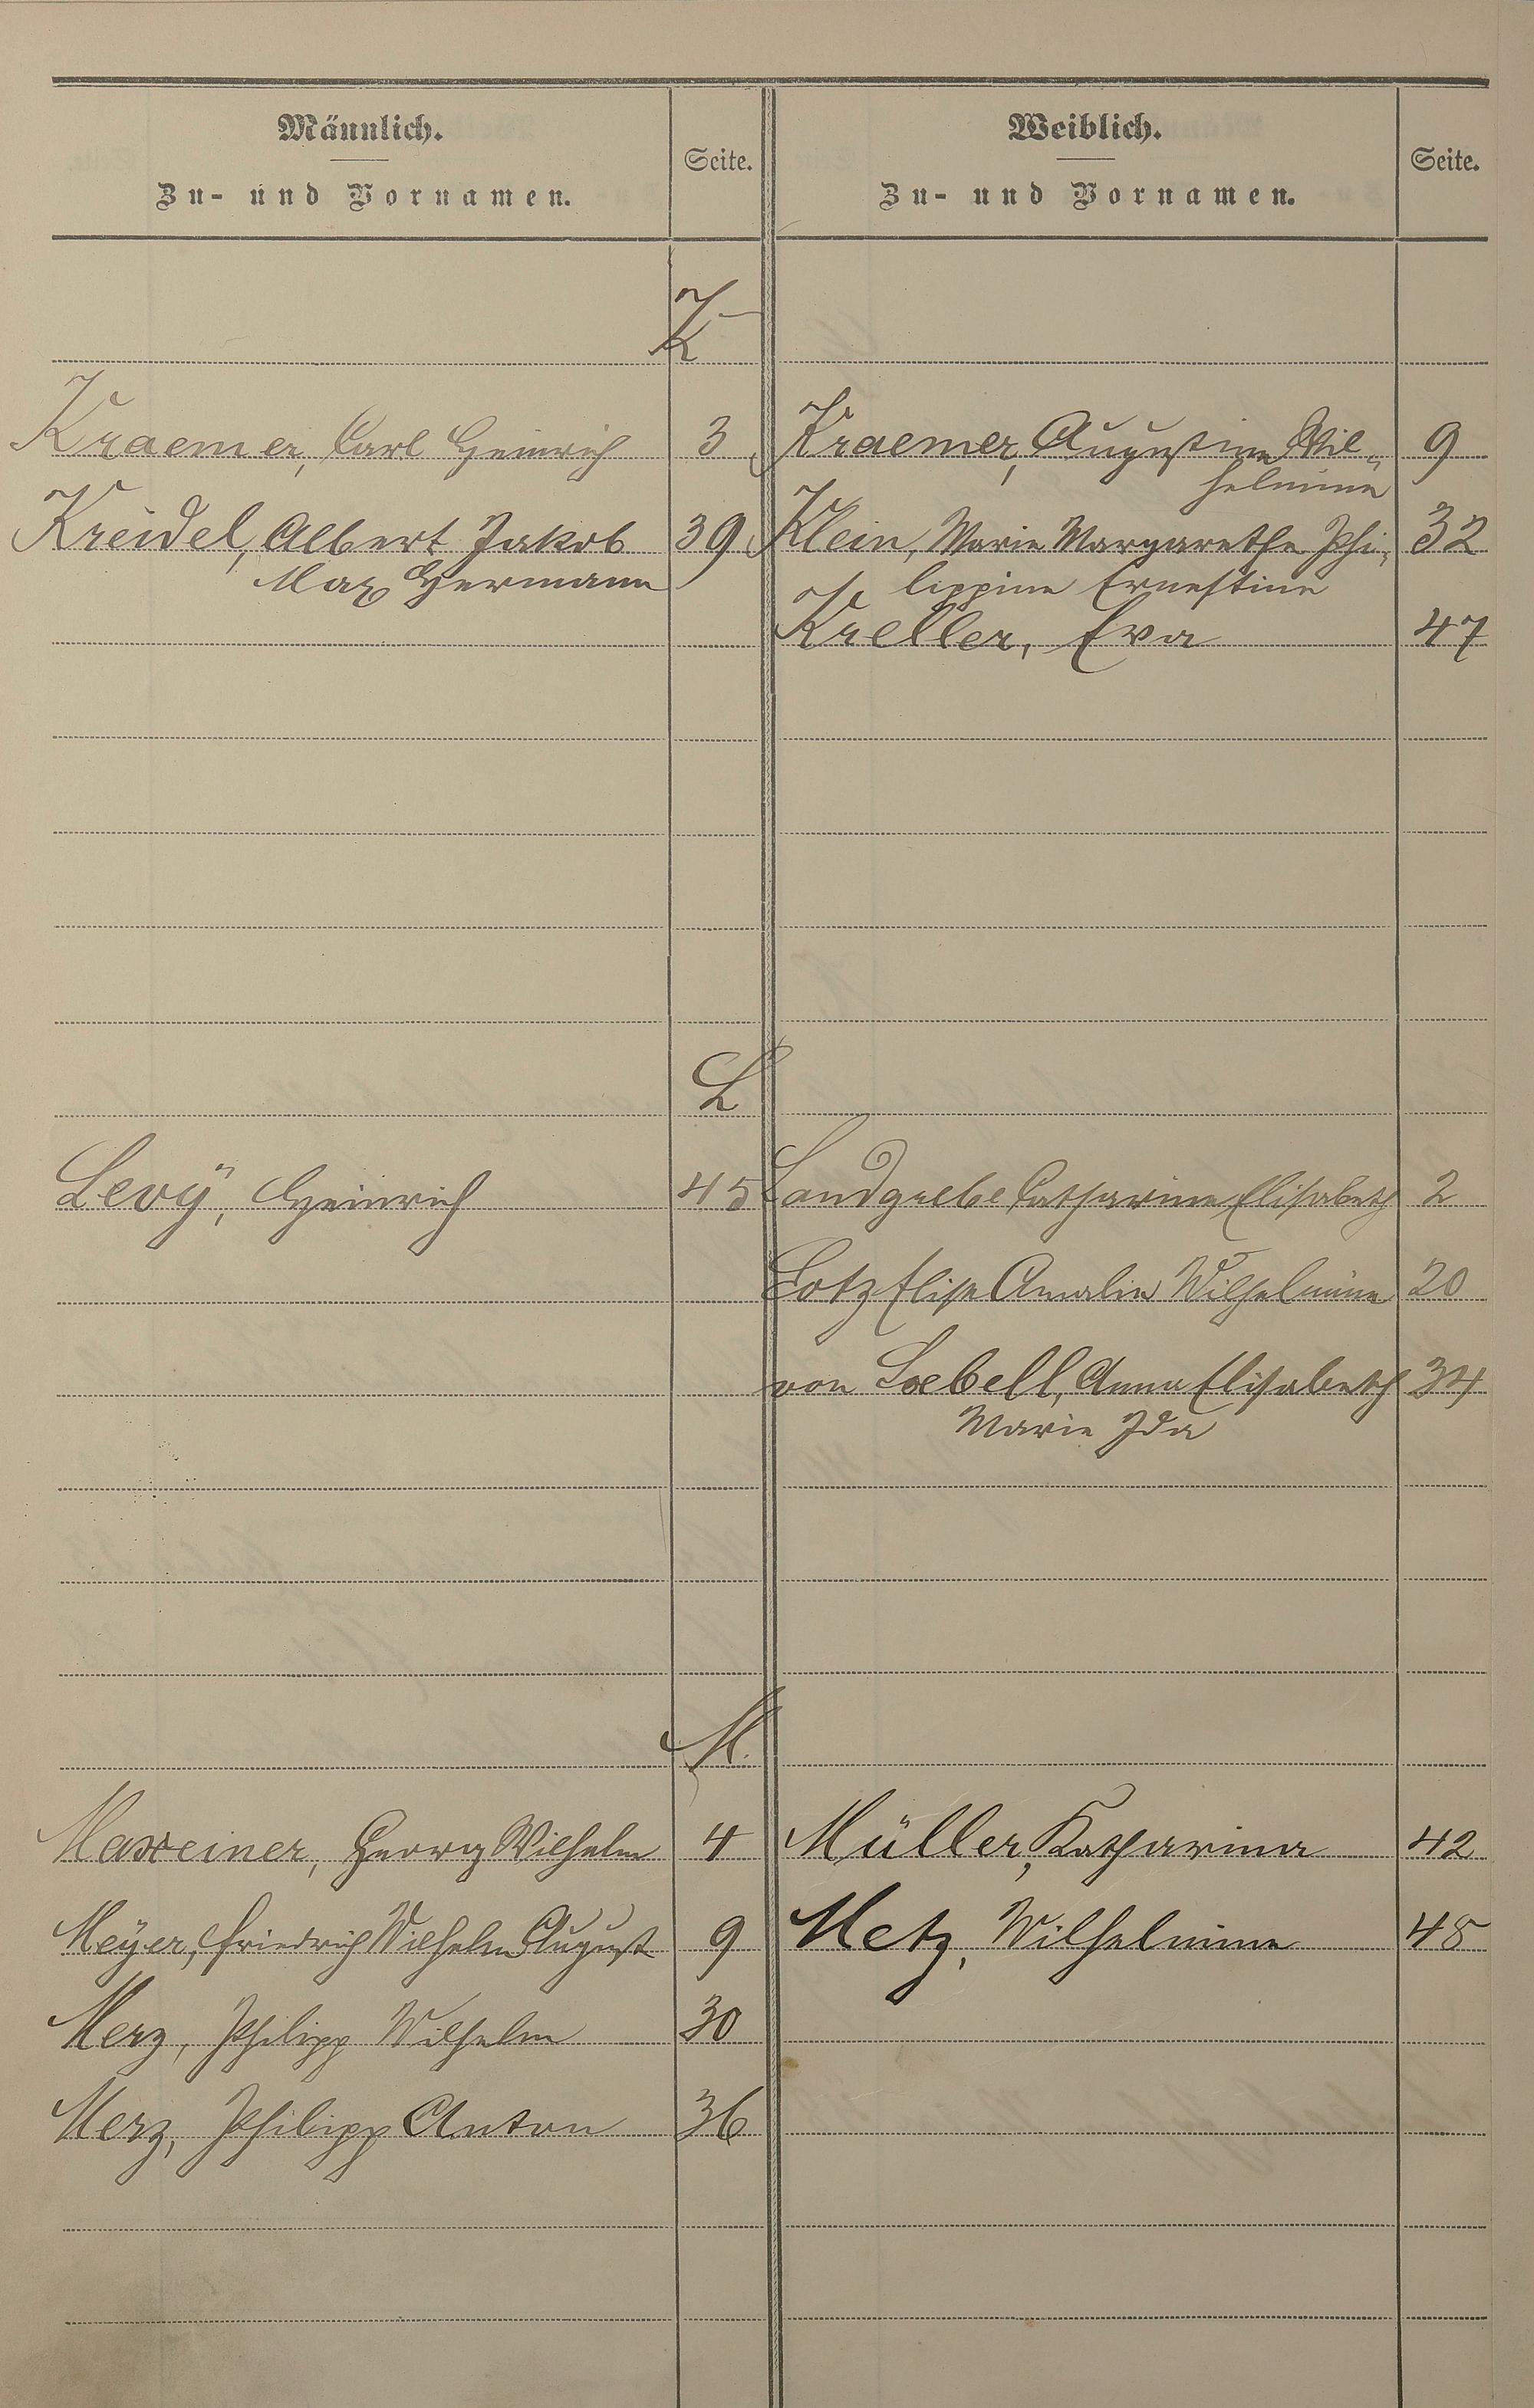 Männlich.
Zu- und Vornamen.
Seite.
Weiblich.
Zu- und Vornamen.
Seite.
K
Kraemer, Carl Heinrich 3
Kraemer, Augustine Wil- 9
helmine
Kreidel, Albert Jakob 39
Max Hermann
Klein, Marie Margarethe Phi- 32
lippine Ernestine
Kreller, Eva 47
L
Levÿ, Heinrich 45
Landgrebe Catharine Elisabeth 2
Lotz Elise Amalie Wilhelmine 20
von Loebell, Anna Elisabeth 34
Marie Ida
M.
Maxeiner, Georg Wilhelm 4
Müller, Katharina 42
Meÿer, Friedrich Wilhelm August 9
Metz, Wilhelmine 48
Merz, Philipp Wilhelm 30
Merz, Philipp Anton 36